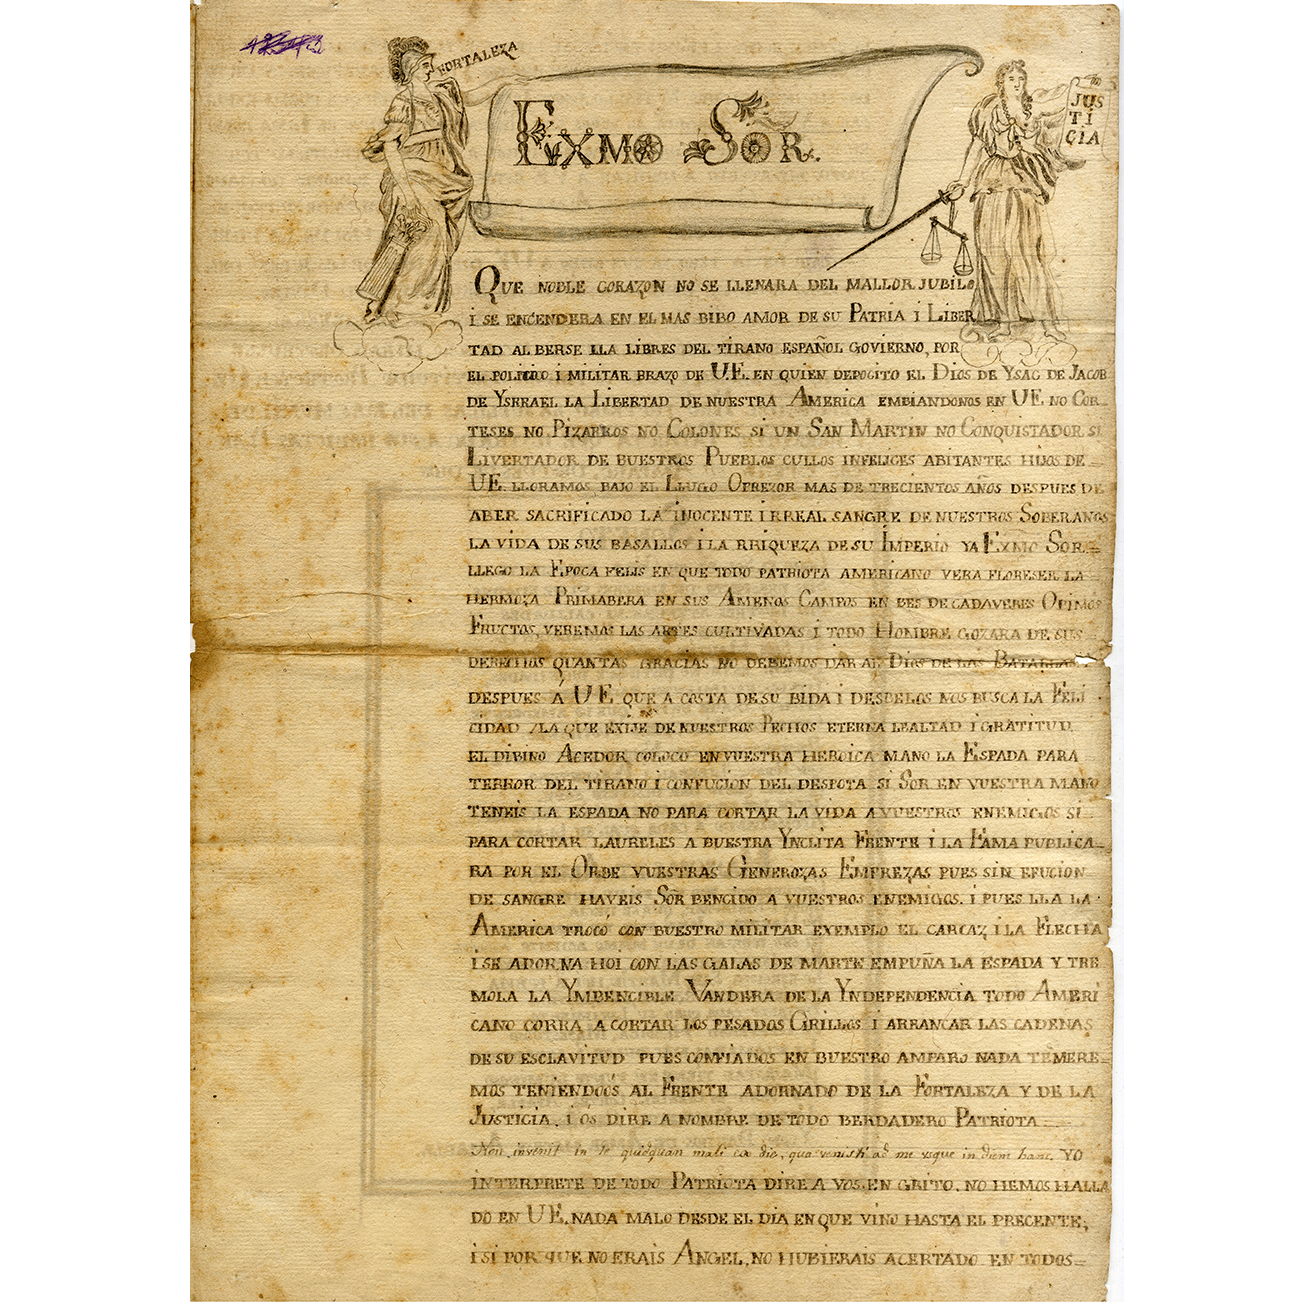 FORTALEZA
EXMO SOR.
JUS
TI
CIA
QUE NOBLE CORAZON NO SE LLENARA DEL MALLOR JUBILO
I SE ENCENDERA EN EL MAS BIBO AMOR DE SU PATRIA I LIBER
TAD AL BERSE LLA LIBRES DEL TIRANO ESPAÑOL GOVIERNO, POR
EL POLITICO I MILITAR BRAZO DE UE. EN QUIEN DEPOCITO EL DIOS DE YSAC DE JACOB
DE YSRRAEL LA LIBERTAD DE NUESTRA AMERICA EMBIANDONOS EN UE NO COR=
TESES NO PIZARROS NO COLONES SI UN SAN MARTIN NO CONQUISTADOR SI
LIVERTADOR DE BUESTROS PUEBLOS CULLOS INFELICES ABITANTES HIJOS DE=
UE. LLORAMOS BAJO EL LLUGO OPREZOR MAS DE TRECIENTOS AÑOS DESPUES DE
ABER SACRIFICADO LA INOCENTE I RREAL SANGRE DE NUESTROS SOBERANOS
LA VIDA DE SUS BASALLOS I LA RRIQUEZA DE SU IMPERIO YA EXMO SOR.=
LLEGO LA EPOCA FELIS EN QUE TODO PATRIOTA AMERICANO VERA FLORESER LA=
HERMOZA PRIMABERA EN SUS AMENOS CAMPOS EN BES DE CADAVERES OPIMOS
FRUCTOS, VEREMOS LAS ARTES CULTIVADAS I TODO HOMBRE GOZARA DE SUS=
DERECHOS QUANTAS GRACIAS NO DEBEMOS DAR AL DIOS DE LAS BATALLAS I
DESPUES Á UE QUE A COSTA DE SU BIDA I DESBELOS NOS BUSCA LA FELI
CIDAD /LA QUE EXIJE DE NUESTROS PECHOS ETERNA LEALTAD I GRATITUD
EL DIBINO ACEDOR COLOCO EN VUESTRA HEROICA MANO LA ESPADA PARA
TERROR DEL TIRANO I CONFUCION DEL DESPOTA SI SOR EN VUESTRA MANO
TENEIS LA ESPADA NO PARA CORTAR LA VIDA A VUESTROS ENEMIGOS SI=
PARA CORTAR LAURELES A BUESTRA YNCLITA FRENTE I LA FAMA PUBLICA=
RA POR EL ORBE VUESTRAS GENEROZAS EMPREZAS PUES SIN EFUCION
DE SANGRE HAVEIS SOR BENCIDO A VUESTROS ENEMIGOS. I PUES LLA LA
AMERICA TROCÓ CON BUESTRO MILITAR EXEMPLO EL CARCAZ I LA FLECHA
I SE ADORNA HOI CON LAS GALAS DE MARTE EMPUÑA LA ESPADA Y TRE
MOLA LA YMBENCIBLE VANDERA DE LA YNDEPENDENCIA TODO AMERI
CANO CORRA A CORTAR LOS PESADOS GRILLOS I ARRANCAR LAS CADENAS
DE SU ESCLAVITUD PUES CONFIADOS EN BUESTRO AMPARO NADA TEMERE=
MOS TENIENDOOS AL FRENTE ADORNADO DE LA FORTALEZA Y DE LA
JUSTICIA. I OS DIRE A NOMBRE DE TODO BERDADERO PATRIOTA=
Non invenit in te quidquan mali ea die, qua venisti ad me vsque in diem hanc. YO
INTERPRETE DE TODO PATRIOTA DIRE A VOS EN GRITO. NO HEMOS HALLA
DO EN UE. NADA MALO DESDE EL DIA EN QUE VINO HASTA EL PRECENTE;
I SI POR QUE NO ERAIS ANGEL, NO HUBIERAIS ACERTADO EN TODOS=